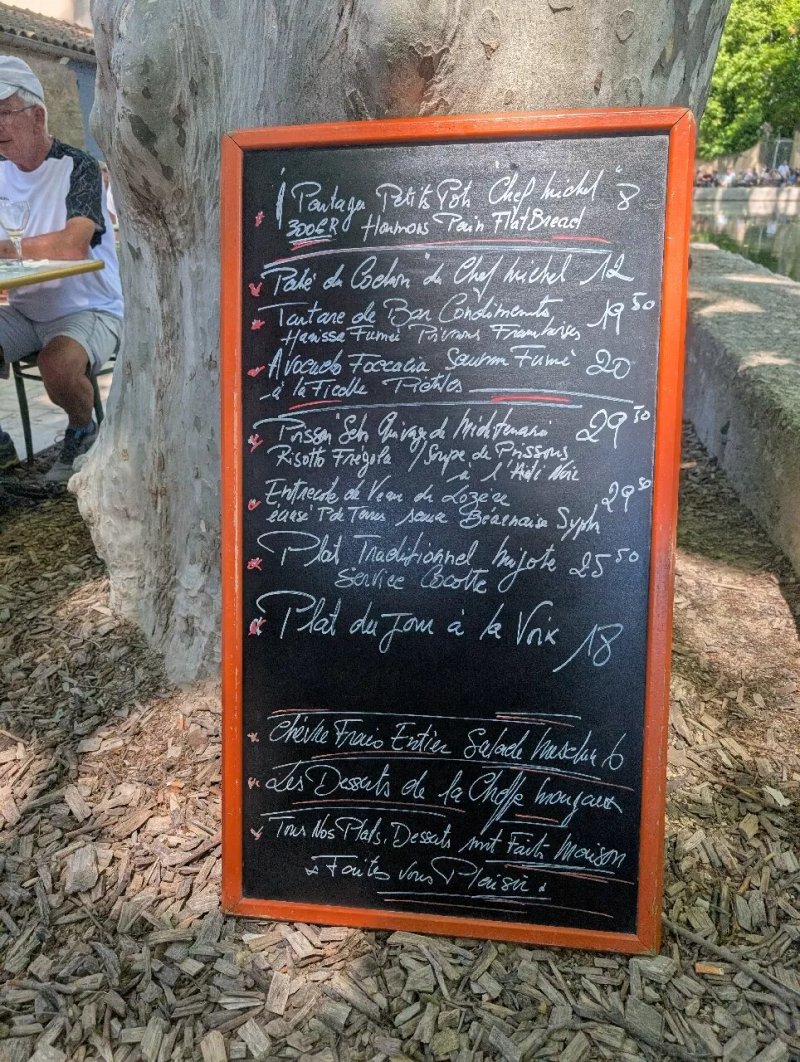 Partager Petits Pots "Chef Michel" 8
300GR Houmous Pain Flat Bread
Paté du Cochon du Chef Michel 12
Tartare de Bar Condiments 19 50
Harissa Fumée Poivrons Framboises
Avocado Foccacia Saumon Fumé 20
à la Ficelle Pickles
Poisson Selon Arrivage de Méditerranée 29 50
Risotto Fregola / Soupe de Poissons
à l'Aïl Noir
Entrecote de Veau de Lozère 29 50
écrasé P de Terres sauce Béarnaise Syph
Plat Traditionnel Mijoté 25 50
Service Cocotte
Plat du Jour à la Voix 18
Chèvre Frais Entier Salade Mesclun 6
Les Desserts de la Cheffe
Tous Nos Plats, Desserts sont Faits Maison
Faites vous Plaisir